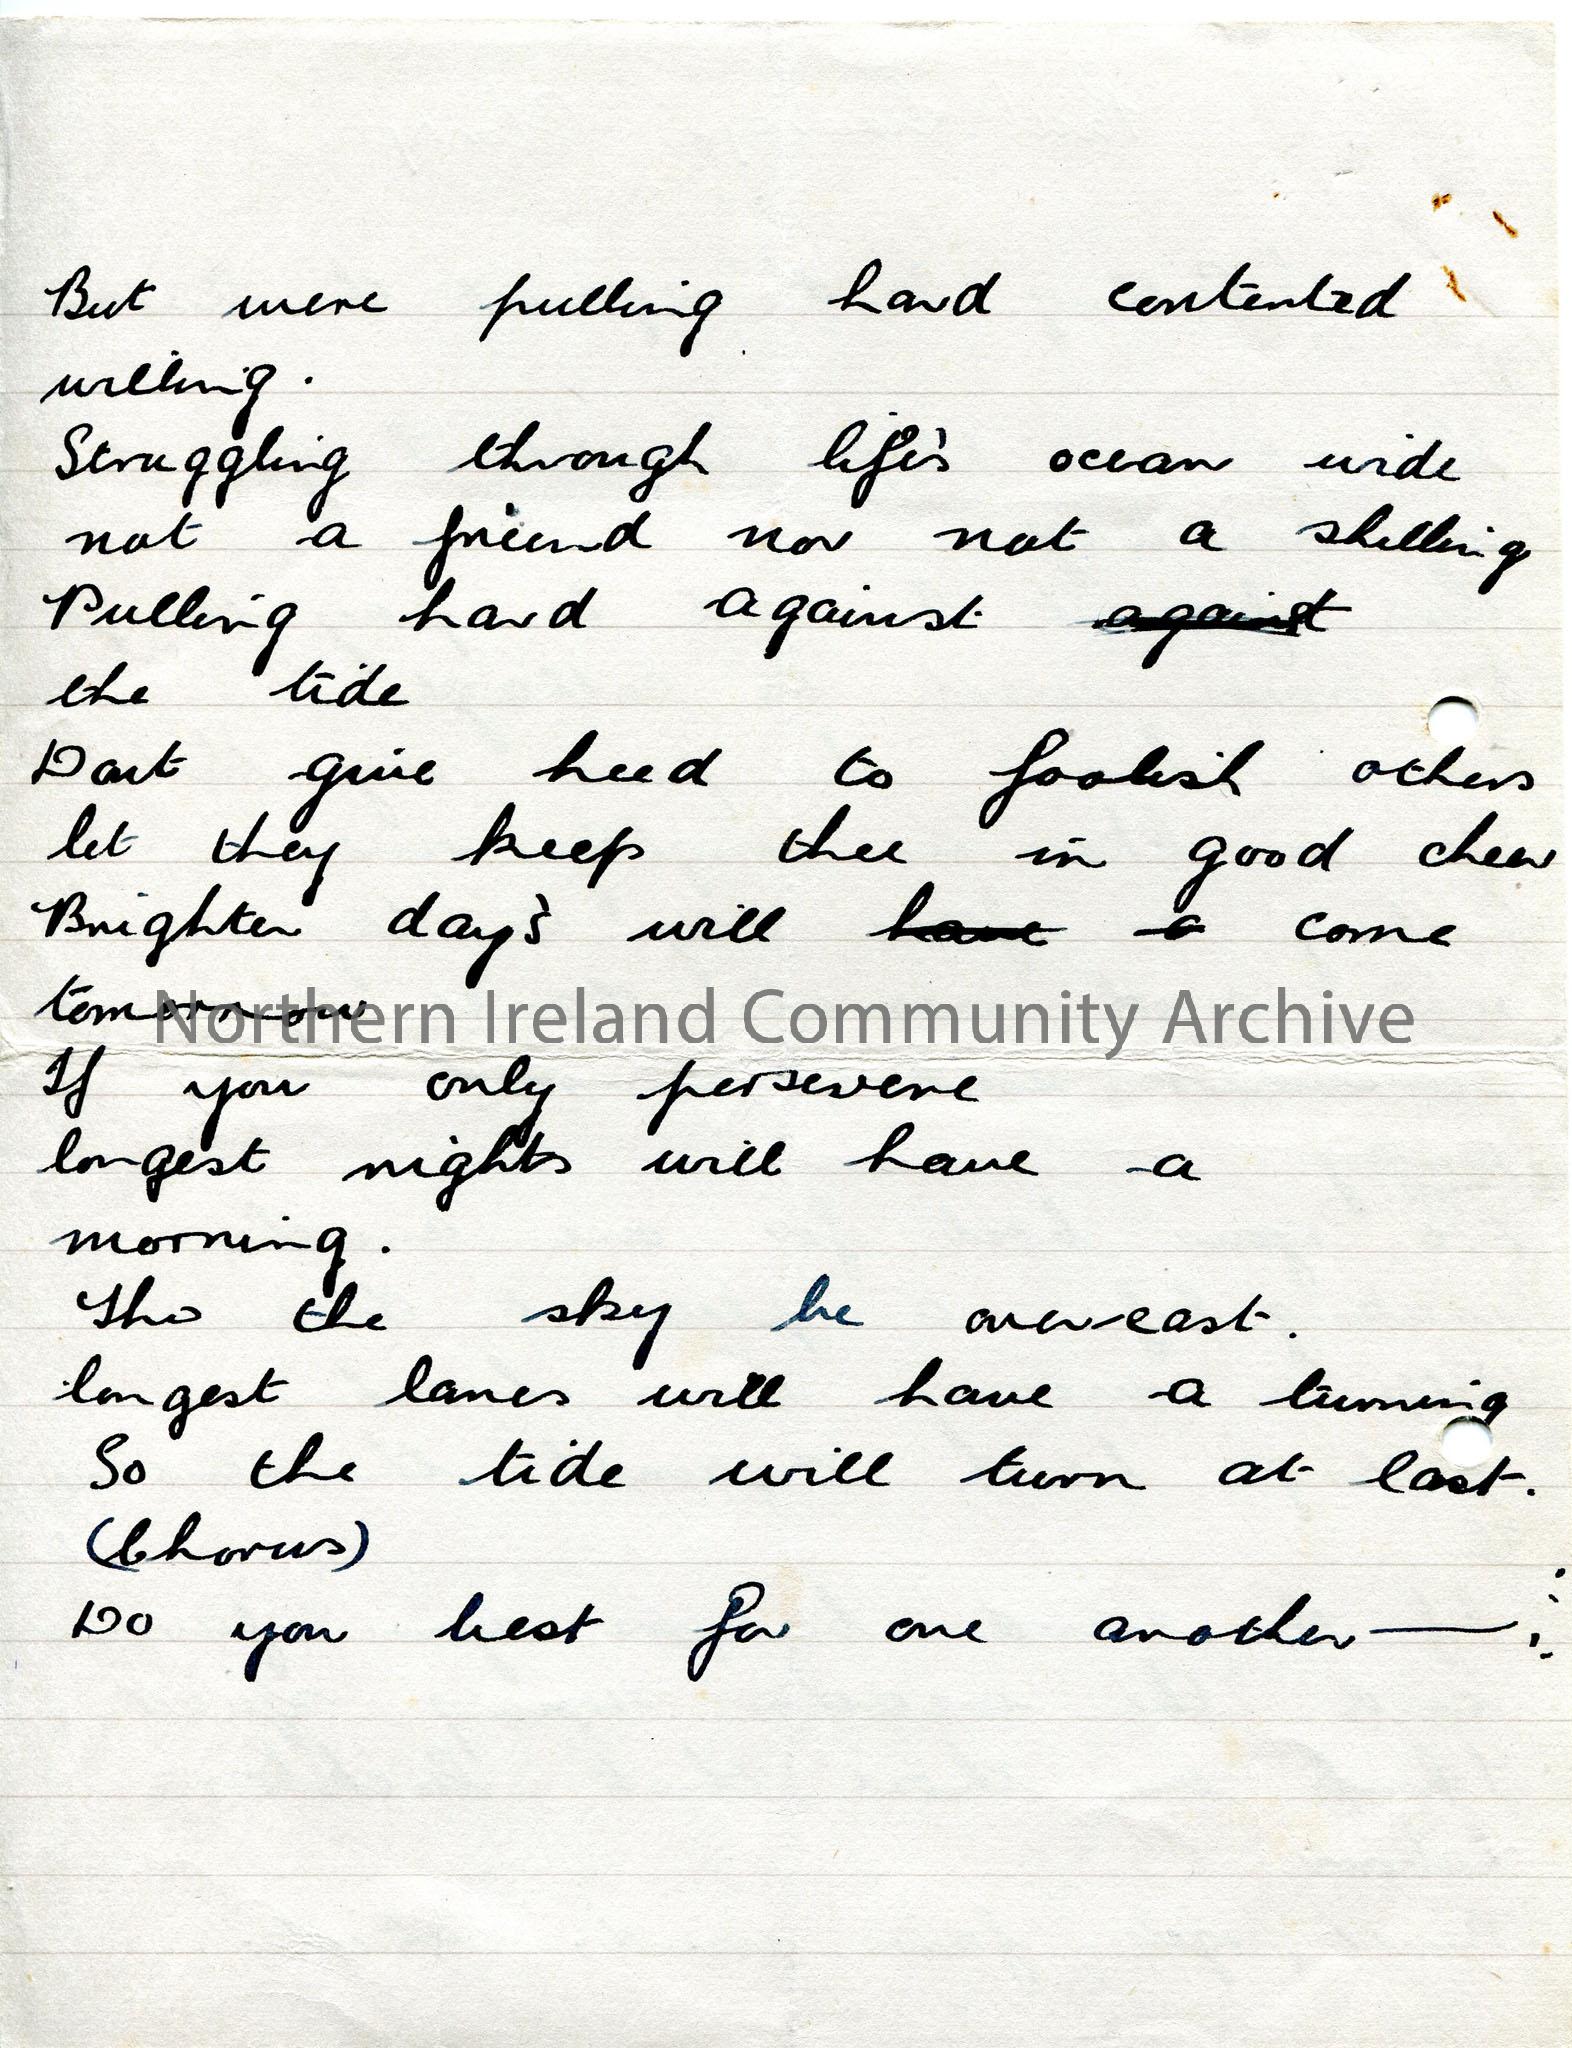 But were pulling hard contented
willing.
Struggling through life's ocean wide
not a friend nor not a shilling
Pulling hard against against
the tide
Dont give heed to foolish others
let they keep thee in good cheer
Brighter day's will have a come
tomorrow
Northern Ireland Community Archive
If you only persevere
longest nights will have a
morning.
Tho the sky be overcast.
longest lanes will have a turning
So the tide will turn at last.
(Chorus)
Do you best for one another—